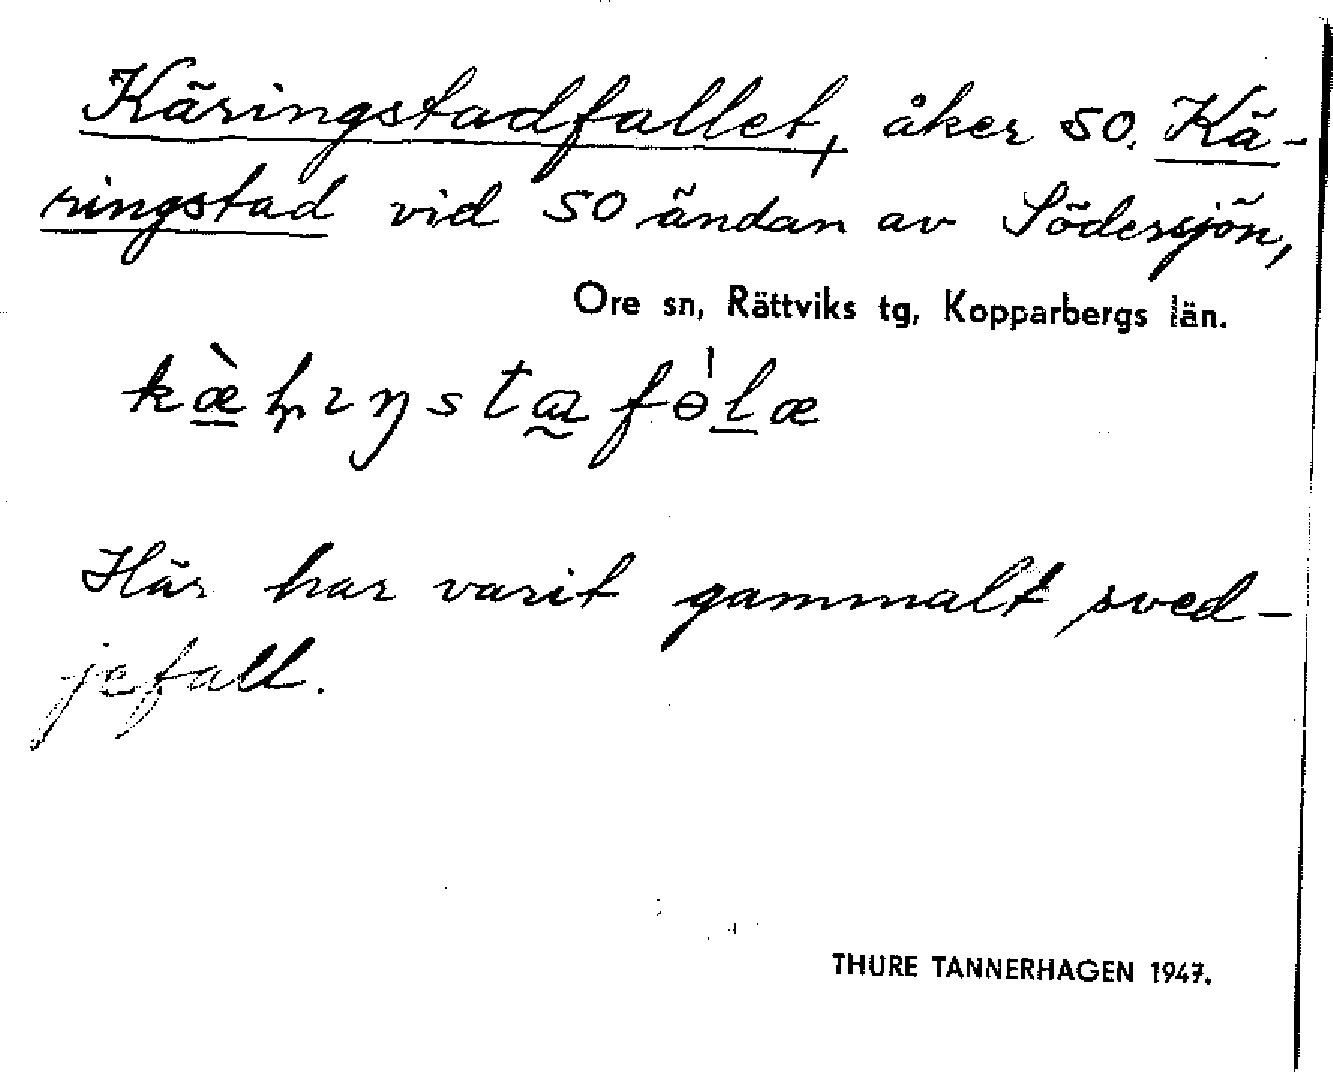 Käringstadfallet, åker SO. Kä-
ringstad vid SO ändan av Södersjön,
Ore sn, Rättviks tg, Kopparbergs län.
Här har varit gammalt sved-
jefall.
THURE TANNERHAGEN 1947.